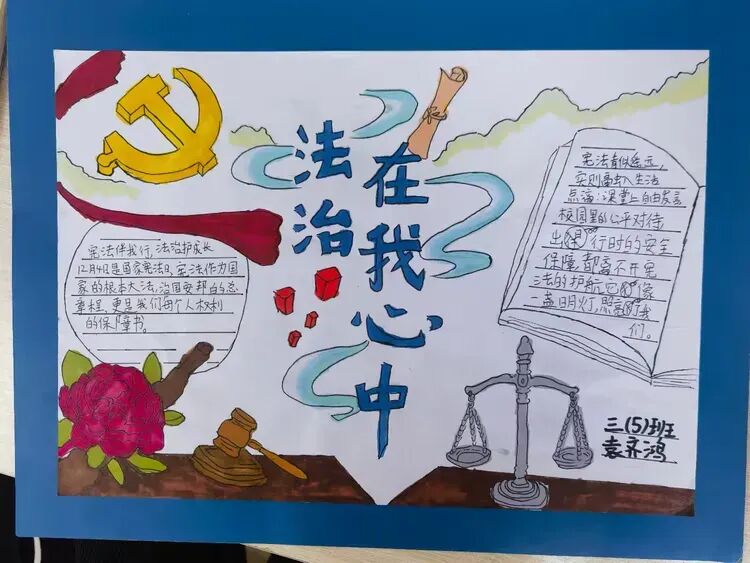 法治
在我心中
宪法伴我行,法治护成长
12月4日是国家宪法日,宪法作为国
家的根本大法,治国安邦的总
章程,更是我们每个人权利
的保障书。
宪法看似遥远,
实则融入生活
点滴:课堂上自由发言
校园里的公平对待
出行时的安全
保障都离不开
法的护航它像
一盏明灯,照亮我
们。
三(5)班
袁齐鸿